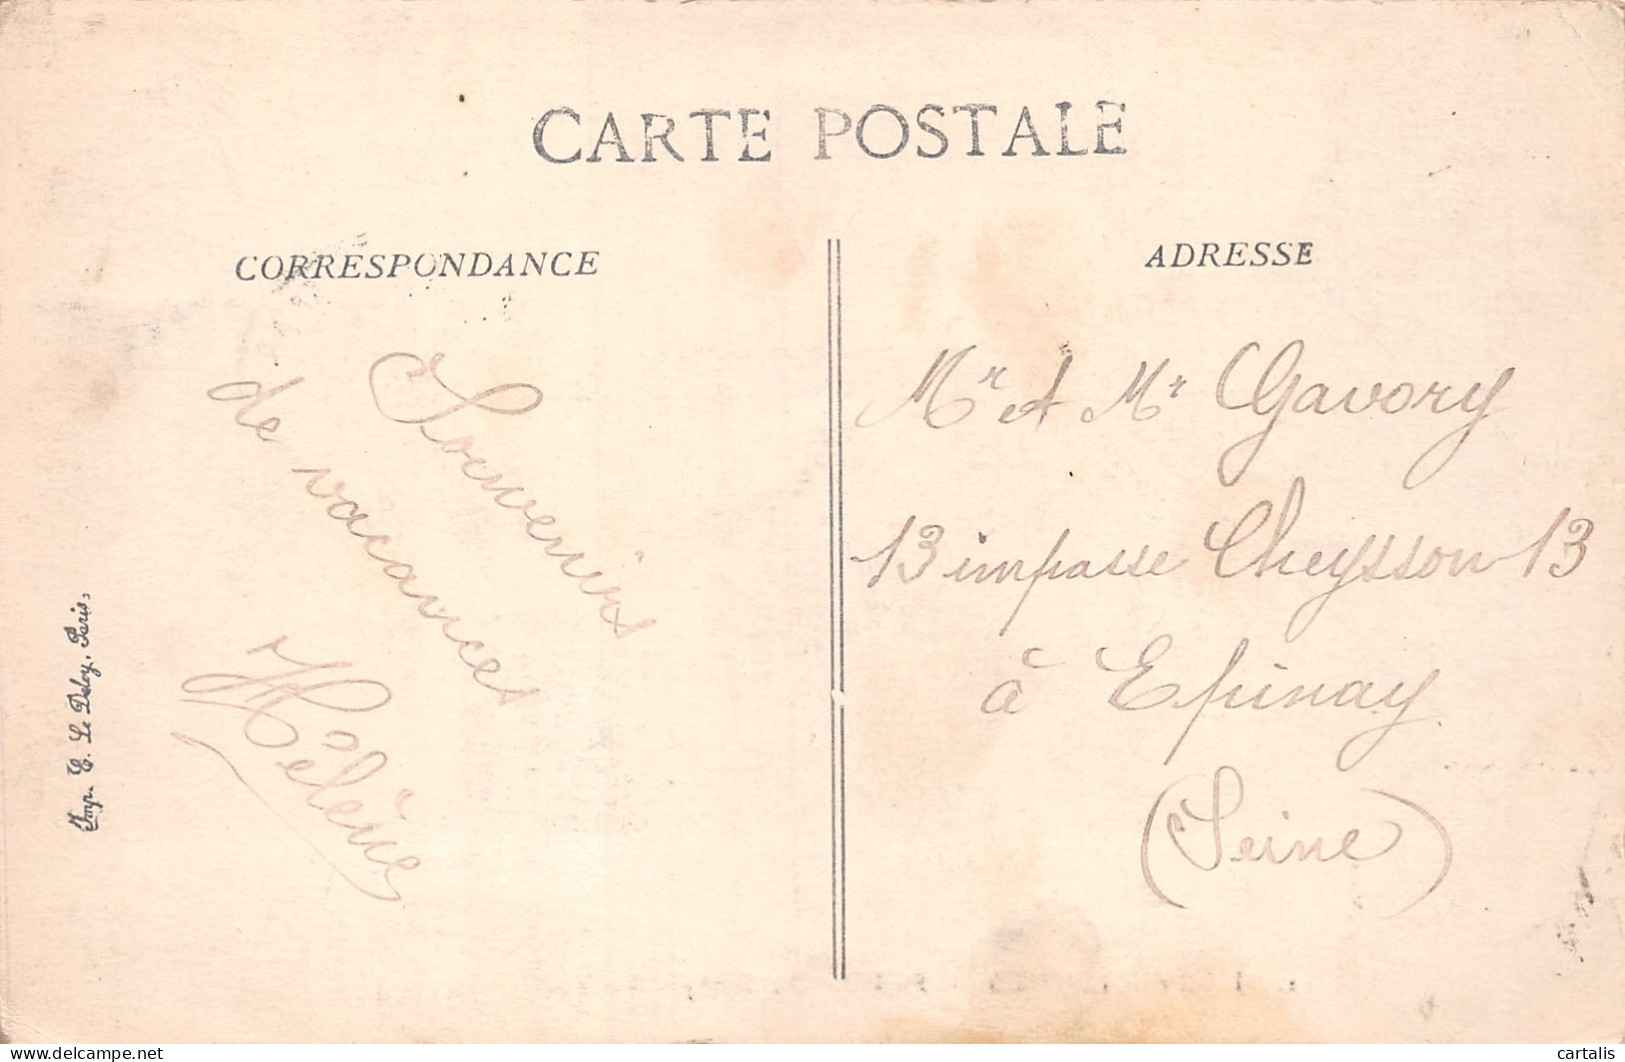 CARTE POSTALE
CORRESPONDANCE
Souvenirs
de vacances
Hélène
ADRESSE
Mr et Mr Gavory
13 impasse Cheysson 13
à Epinay
(Seine)
Imp. E. Le Deley, Paris.
delcampe.net
cartalis